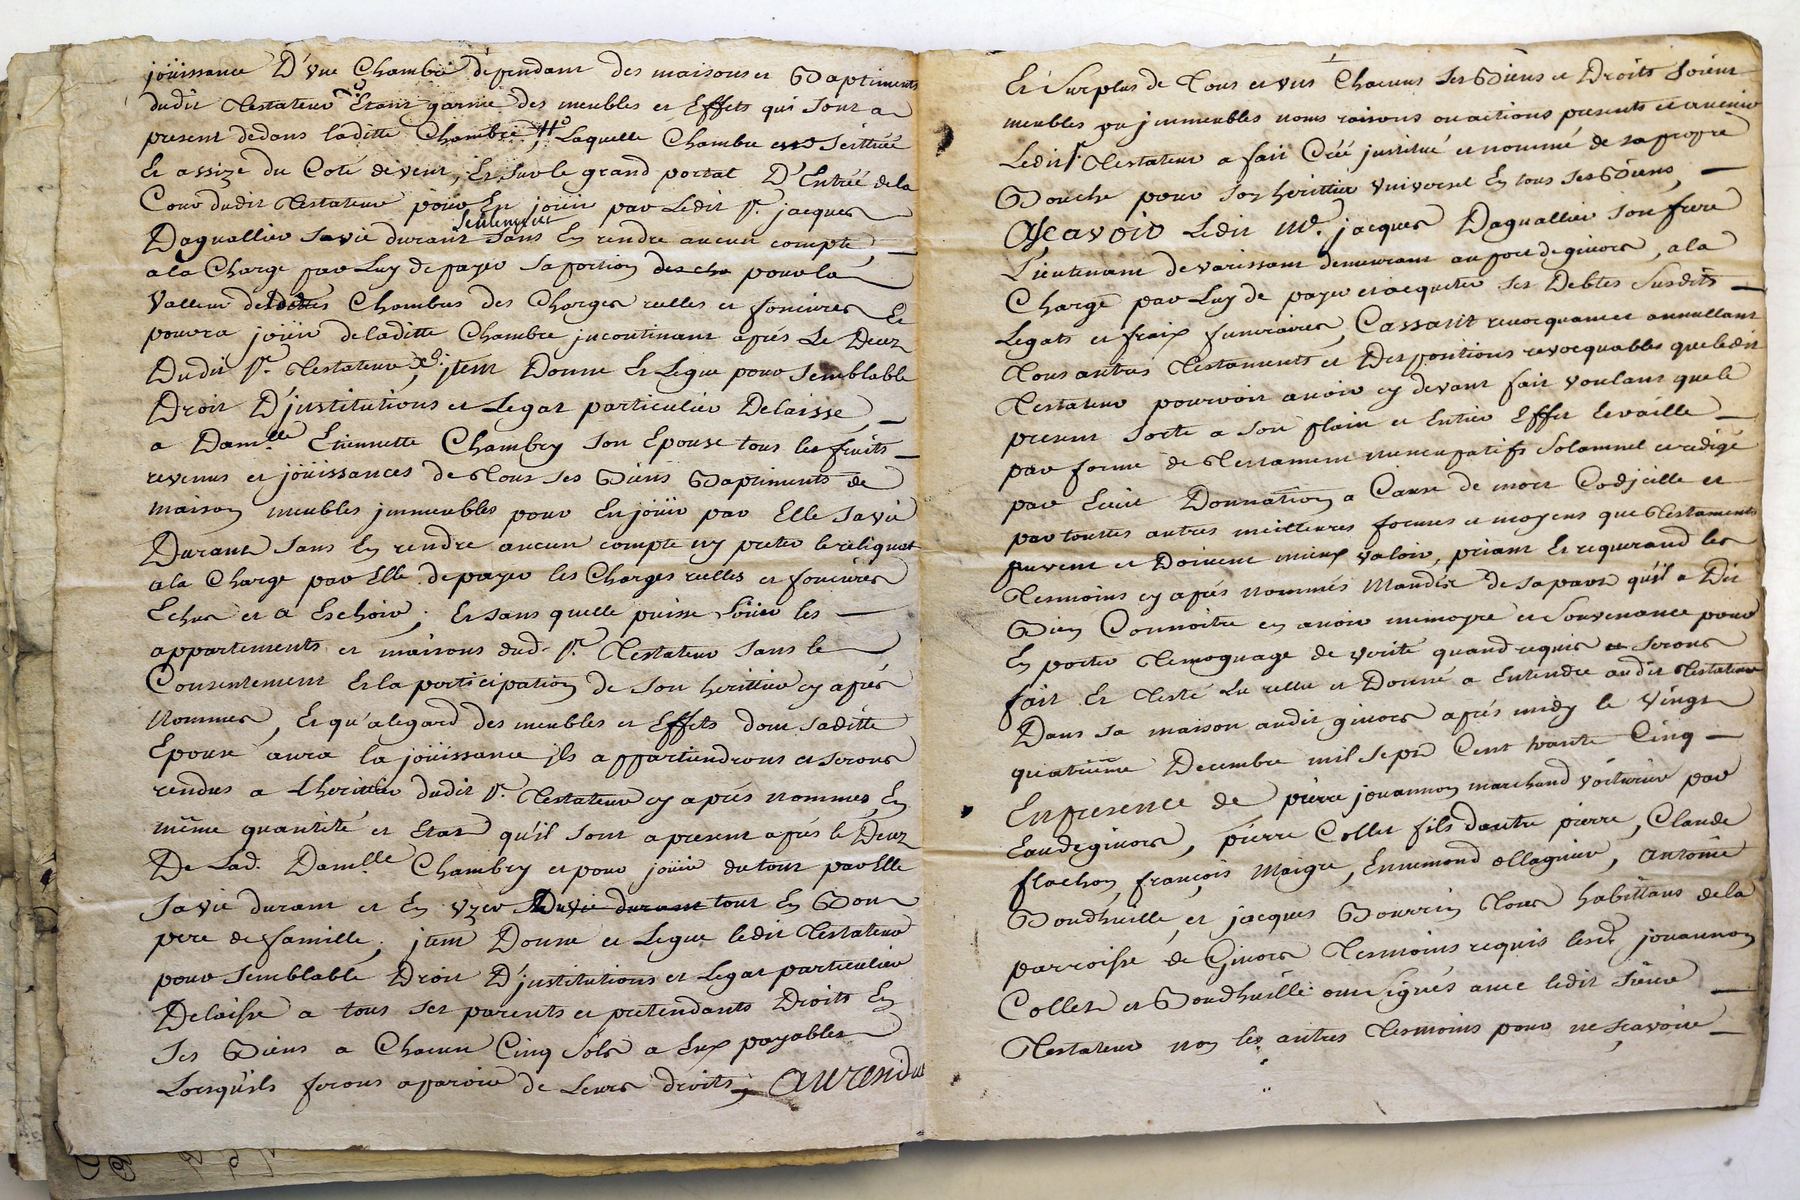 joüissance D'vne Chambre dépendant des maisons et Baptiments
dudit Testateur Étant garnie des meubles et Effets qui sont a
present dedans laditte Chambre, Laquelle Chambre est Scittuée
Et assize du Coté de vent, Et sur le grand portal D'Entrée de la
Cour dudit Testateur pour En joüir par Ledit Sr. jacques
seulement
Daguallier sa vie durant sans En rendre aucun compte,
a la Charge par Luy de payer sa portion des cha pour la
Valleur desdittes Chambres des Charges reelles et foncieres Et
pourra joüir de laditte Chambre jncontinant aprés Le Decez
Dudit Sr. Testateur, jtem Donne Et Legue pour semblable
Droit D'justitutions et Legat particulier Delaisse,
a Damlle Etiennette Chambry son Epouse tous les fruits
revenus et joüissances de Tous ses Biens Baptiments de
maison meubles jmmeubles pour En joüir par Elle sa vie
Durant sans En rendre aucun compte ny preter le reliquat
a la Charge par Elle de payer les Charges reelles et foncieres
Echus et a Eschoir; Et sans quelle puisse loüer les
appartements et maisons dud. Sr. Testateur sans le
Consentement Et la participation de son herittier cy aprés
Nommer, Et qu'a legard des meubles et Effets dont saditte
Epouse aura la joüissance jls appartiendront et seront
rendus a Lheritier dudit Sr. Testateur cy aprés nommes, En
même quantité et Etat qu'il sont a present aprés le Decez
De Lad. Damlle Chambry et pour joüir du tout par Elle
Sa vie durant et En vzer Sa vie durant tout En Bon
pere de famille, jtem Donne et Legue ledit Testateur
pour semblable Droit D'justitutions et Legat particulier
Delaisse a tous ses parents et pretendants Droits En
ses Biens a Chacun Cinq Sols a Eux payables
Lorsqu'ils feront aparoir de Leurs droits; au residu
Et Surplus de Tous et vns Chacuns ses Biens et Droits soient
meubles ou jmmeubles noms raisons ou actions presents et avenir
Ledit Sr Testateur a fait Créé justitué et nommé de sa propre
Bouche pour son herittier Vniversel En tous ses Biens,
Ascavoir Ledit Mr. jacques Daguallier son frere
Lieutenant de varissant demeurant au port de givors, a la
Charge par Luy de payer et acquiter ses Debtes susdits
Legats et fraix funeraires, Cassant revocquant et annullant
Tous autres Testaments et Dispositions revocquables que ledit
Testateur pourroit avoir cy devant fait voulant que le
present sorte a son plain et Entier Effet Et vaille
par forme de Testament nuncupatifs Solamnel et redigé
par Ecrit Donnation a Cause de mort Codjcille et
par toutes autres meilleures formes et moyens que Testaments
puvent et Doivent mieux valoir, priant Et requerand les
Tesmoins cy aprés nommés Mandés de sa part qu'il a Dit
Bien Connoitre en avoir memoyre et Souvenance pour
En porter Temoquage de verité quand requis en seront
fait Et Testé Lu relu et Donné a Entendre audit Testateur
Dans sa maison audit givors aprés midy le Vingt
quatriême Decembre mil sept Cent trante Cinq
En presence de pierre jouannon marchand voiturier par
Eau de givors, pierre Collet fils dautre pierre, Claude
flachon, françois Maigre, Ennemond ollagnier, Antoine
Boudhuille, et jacques Bourrin Tous habittans de la
parroisse de Givors Tesmoins requis lesd. jouannon
Collet et Boudhuille ont signés avec ledit sieur
Testateur non les autres Tesmoins pour ne scavoir